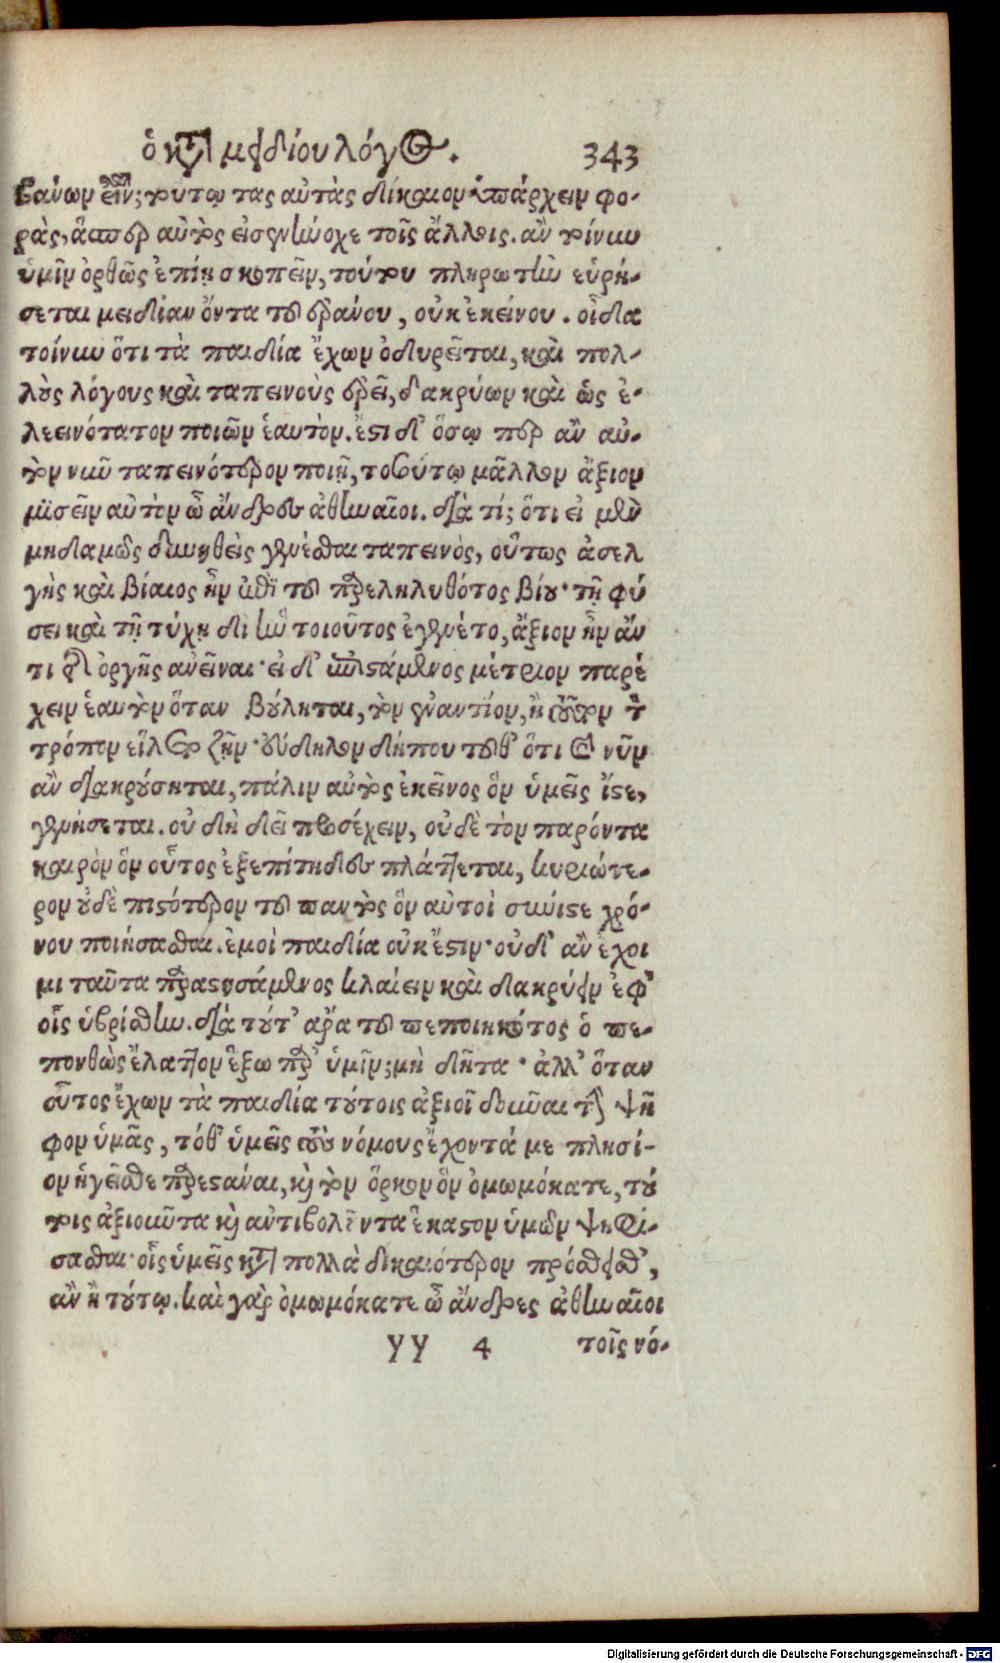 ὁ κατὰ μειδίου λόγος. 343
βανων εἶναι; τούτῳ τὰς αὐτὰς δίκαιον ὑπάρχειν φο-
ρὰς, ἅσπερ αὐτὸς εἰσενήνοχε τοῖς ἄλλοις. ἂν τοίνυν
ὑμῖν ὀρθῶς ἐπίῃ σκοπεῖν, τούτου πληρωτὴν εὑρή-
σεται μειδίαν ὄντα τοῦ ἐράνου, οὐκ ἐκείνου. οἶδα
τοίνυν ὅτι τὰ παιδία ἔχων ὀδυρεῖται, καὶ πολ-
λοὺς λόγους καὶ ταπεινοὺς ἐρεῖ, δακρύων καὶ ὡς ἐ-
λεεινότατον ποιῶν ἑαυτὸν. ἔστι δ' ὅσῳ περ ἂν αὑ-
τὸν νῦν ταπεινότερον ποιῇ, τοσούτῳ μᾶλλον ἄξιον
μισεῖν αὐτὸν ὦ ἄνδρες ἀθηναῖοι. διὰ τί; ὅτι εἰ μὲν
μηδαμῶς δυνηθεὶς γενέσθαι ταπεινὸς, οὕτως ἀσελ
γὴς καὶ βίαιος ἦν ἐπὶ τοῦ παρεληλυθότος βίου· τῇ φύ
σει καὶ τῇ τύχῃ δι' ἣν τοιοῦτος ἐγένετο, ἄξιον ἦν ἄν
τι τῆς ὀργῆς ἀνεῖναι· εἰ δ' ἐπιστάμενος μέτριον παρέ
χειν ἑαυτὸν ὅταν βούληται, τὸν ἐναντίον, ἢ τοῦτον τὸν
τρόπον εἵλετο ζῆν· εὔδηλον δήπου τοῦθ' ὅτι καὶ νῦν
ἂν διακρούσηται, πάλιν αὐτὸς ἐκεῖνος ὃν ὑμεῖς ἴστε,
γενήσεται. οὐ δὴ δεῖ προσέχειν, οὐδὲ τὸν παρόντα
καιρὸν ὃν οὗτος ἐξεπίτηδες πλάττεται, κυριώτε-
ρον οὐδὲ πιστότερον τοῦ παντὸς ὃν αὐτοὶ σύνιστε χρό-
νου ποιήσασθαι. ἐμοὶ παιδία οὐκ ἔστιν· οὐδ' ἂν ἔχοι
μι ταῦτα παραστησάμενος κλαίειν καὶ δακρύειν ἐφ'
οἷς ὑβρίσθην. διὰ τοῦτ' ἄρα τοῦ πεποιηκότος ὁ πε-
πονθὼς ἔλαττον ἕξω παρ' ὑμῖν; μὴ δῆτα· ἀλλ' ὅταν
οὗτος ἔχων τὰ παιδία τούτοις ἀξιοῖ δοῦναι τὴν ψῆ
φον ὑμᾶς, τόθ' ὑμεῖς τοὺς νόμους ἔχοντά με πλησί-
ον ἡγεῖσθε παρεστάναι, καὶ τὸν ὅρκον ὃν ὀμωμόκατε, τού
τοις ἀξιοῦντα καὶ ἀντιβολοῦντα ἕκαστον ὑμῶν ψηφί-
σασθαι· οἷς ὑμεῖς κατὰ πολλὰ δικαιότερον πρόσθεσθ',
ἂν ἢ τούτῳ. καὶ γὰρ ὀμωμόκατε ὦ ἄνδρες ἀθηναῖοι
yy 4 τοῖς νό-
Digitalisierung gefördert durch die Deutsche Forschungsgemeinschaft - DFG